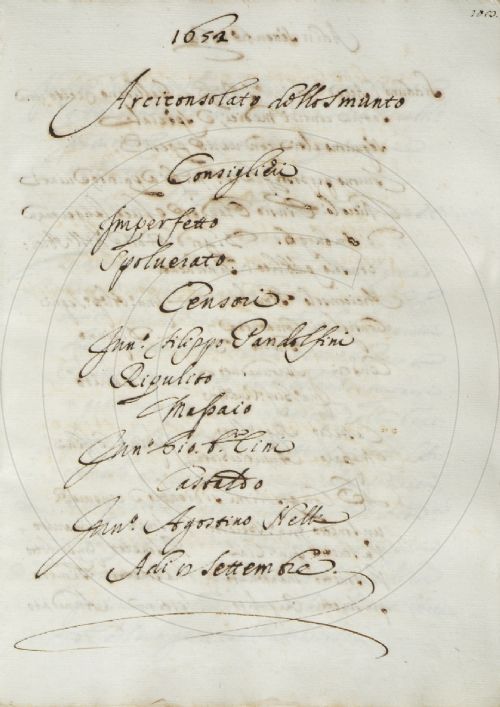 1652
Arciconsolato dello Smunto
Consiglieri
Imperfetto
Spoluerato
Censori
Inn.o Filippo Pandolfini
Ripulito
Massaio
Inn.o Gio. Cini
Castaldo
Inn.o Agostino Nelli
Adi Settembre.